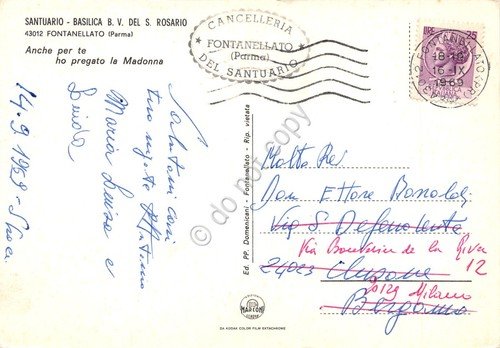 SANTUARIO - BASILICA B. V. DEL S. ROSARIO
43012 FONTANELLATO (Parma)
Anche per te
ho pregato la Madonna
CANCELLERIA
FONTANELLATO
(Parma)
DEL SANTUARIO
LIRE 25
FONTANELLATO
18-19
16-IX
1969
14.9.1969 -
Salutoni cari
Maria Luisa e
Linda
Ed. PP. Domenicani - Fontanellato - Rip. vietata
Molto Re
Don Ettore Bonaldi
Via S Defendente
Via Bonvesin de la Riva
12
24023 Clusone
20129 Milano
Bergamo
MARCONI
DA KODAK COLOR FILM EKTACHROME
do not copy